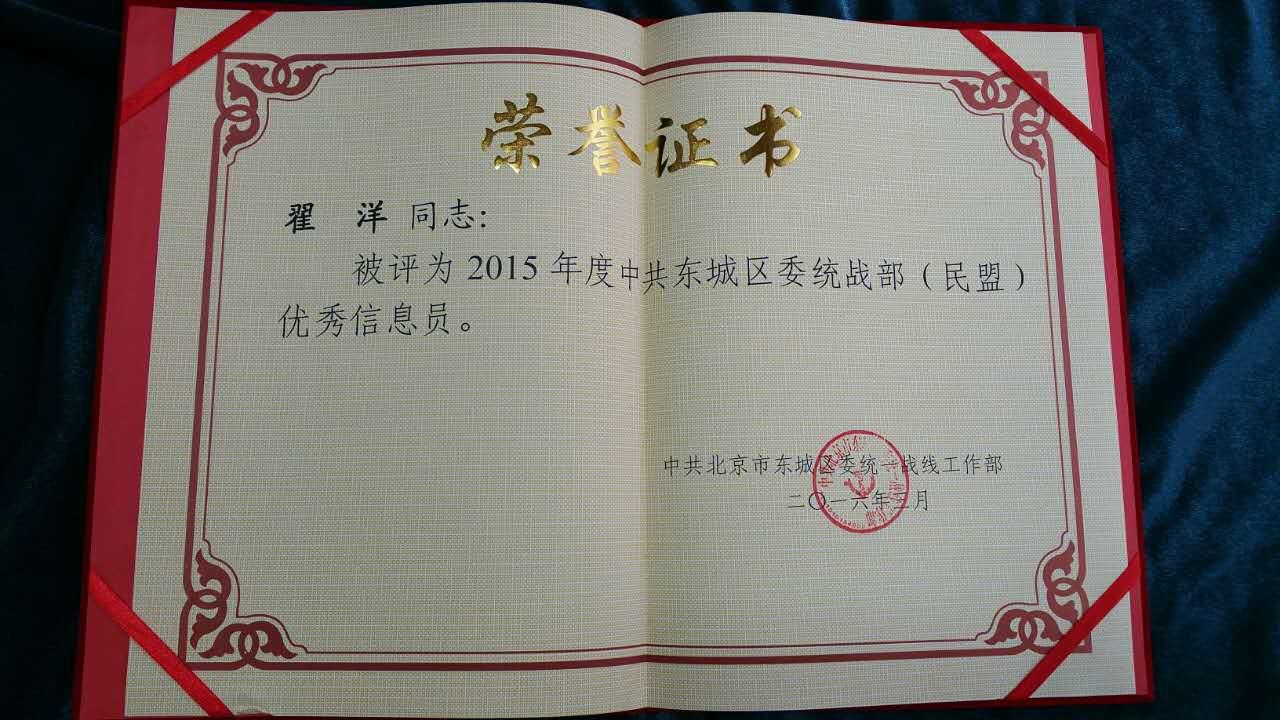 荣誉证书
翟 洋 同志:
被评为 2015 年度中共东城区委统战部（民盟）
优秀信息员。
中共北京市东城区委统一战线工作部
二〇一六年三月